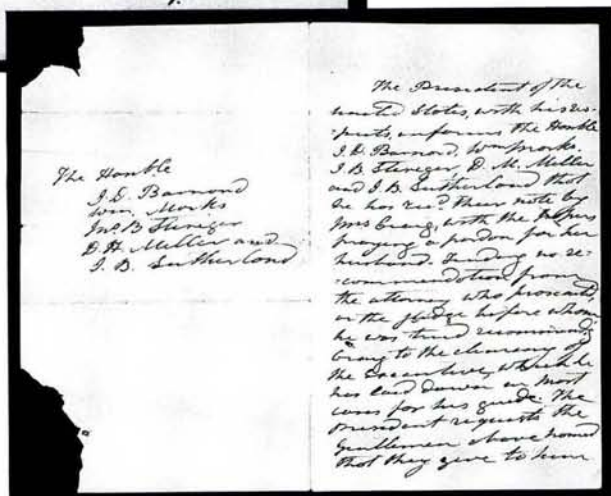 The Honble
I. D. Barnard
Wm. Marks
Jno. B Sterigere
D. H. Miller and
J. B. Sutherland
The President of the
United States, with his res-
-pects, informs the Honble
I. D. Barnard, Wm Marks.
J. B Sterigere, D. H. Miller
and J. B. Sutherland that
he has recd. their note by
Mrs Craig, with the papers
praying a pardon for her
husband. Finding no re-
-commendation from
the attorney who prosecuted,
or the Judge before whom
he was tried recommending
Craig to the clemency of
the Executive, which he
has laid down in most
cases for his guide. The
President requests the
Gentlemen above named
that they give to him